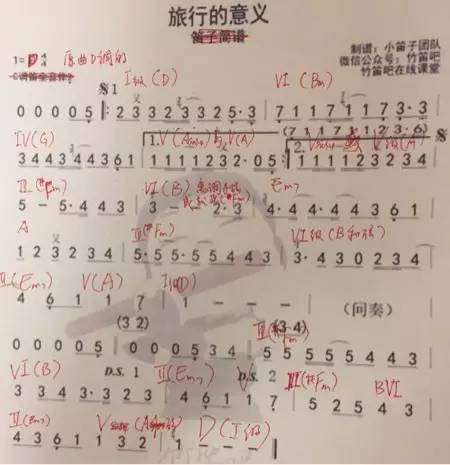 旅行的意义
笛子简谱
制谱：小笛子团队
微信公众号：竹笛吧
竹笛吧在线课堂
1=D 4/4 原曲D调的
𝄋1 I级(D) VI(Bm)
0 0 0 0 5 |: 2 3 3 2 3 2 3 3 2 5· 3 | 7 1 1 7 1 1 7 1 7 3· 3 |
(7 1 1 7 1 2 3· 6)
IV(G) 1. V(A) 2. V级(A) 𝄋
3 4 4 3 4 4 4 3 6 1 | 1 1 1 1 2 3 2· 0 5 :| 1 1 1 1 2 3 2 3 4
III(#Fm) VI(B) Em7
5 - 5· 4 4 3 | 3 - - 2· 3 | 4· 4· 4 4· 4 3 6 1 |
A III(#Fm) VI级(B和弦)
1 2 3 2 3 4 | 5· 5 5 5 5 4 4 5 | 3· 4 3 0 2 3 4 |
II(Em7) V(A) I级(D)
4 6 1 1 7 | 1 - - - | (间奏)
(3 2) III(#Fm) (3 4)
0 0 0 0 5 | 0 0 0 5 3 4 | 5 5 5 5 5 5 4 4 3 |
VI(B) D.S. 1 II(Em7) D.S. 2 III(#Fm) BVI
3 3 4 3· 3 2 3 | 4 6 1 1 7 | 5 2 5 4 3 |
II(Em7) V D(I级)
4 4 3 6 1 1 3 2 | 1 - - - |